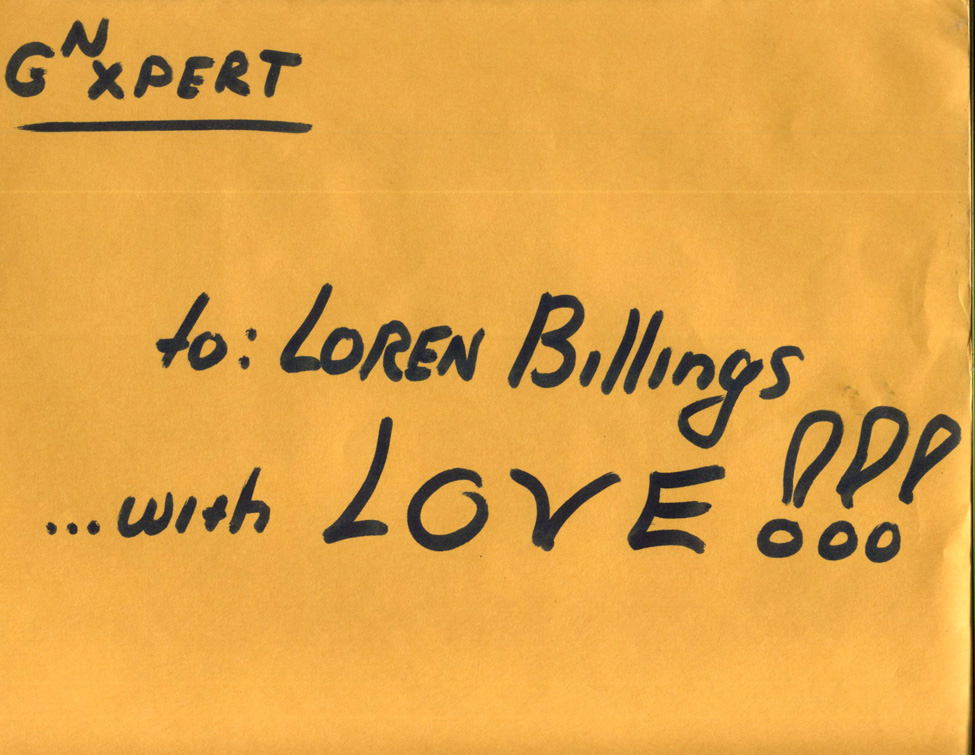 GNXPERT
to: LOREN Billings
...with LOVE !!!